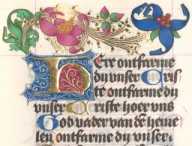 Here ontfarme
dij unser Cris
te ontfarme dij
unser Criste hoer ons
God vader van de heme
len ontfarme dij unser